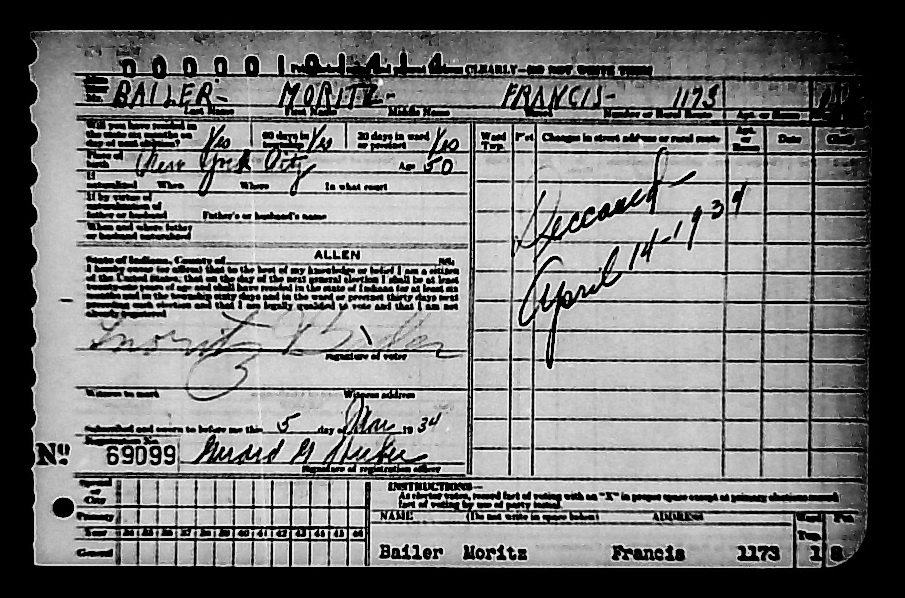 0 0 0 0 0 1 0 4 1 4
CLEARLY—DO NOT WRITE
BAILER- MORITZ- FRANCIS- 1173
Last Name First Name Middle Name Street Number or Rural Route Apt. or Room
Will you have resided in the state six months on day of next election? Yes 60 days in township? Yes 30 days in ward or precinct Yes
Place of birth New York City Age 50
If naturalized When Where In what court
If by virtue of naturalization of father or husband Father's or husband's name
When and where father or husband naturalized
ALLEN
State of Indiana, County of ss.
I hereby swear (or affirm) that to the best of my knowledge or belief I am a citizen
of the United States, that on the day of the next general election I shall be at least
twenty-one years of age and shall have resided in the state of Indiana for at least six
months and in the township sixty days and in the ward or precinct thirty days next
preceding such election and that I am legally qualified to vote and that I am not
already registered
Moritz Bailer
Signature of voter
Witness to mark Witness address
Subscribed and sworn to before me this 5 day of Mar 1934
Registration No.
No 69099
Signature of registration officer
Ward Twp. Pct. Changes in street address or rural route Apt. or Room Date Clerk
Deceased
April 14-1934
Special or City
Primary
Year 34 35 36 37 38 39 40 41 42 43 44 45 46
General
INSTRUCTIONS—
As elector votes, record fact of voting with an "X" in proper space except at primary elections record
fact of voting by use of party initial.
NAME (Do not write in space below) ADDRESS Ward Twp. Pct.
Bailer Moritz Francis 1173 1 8